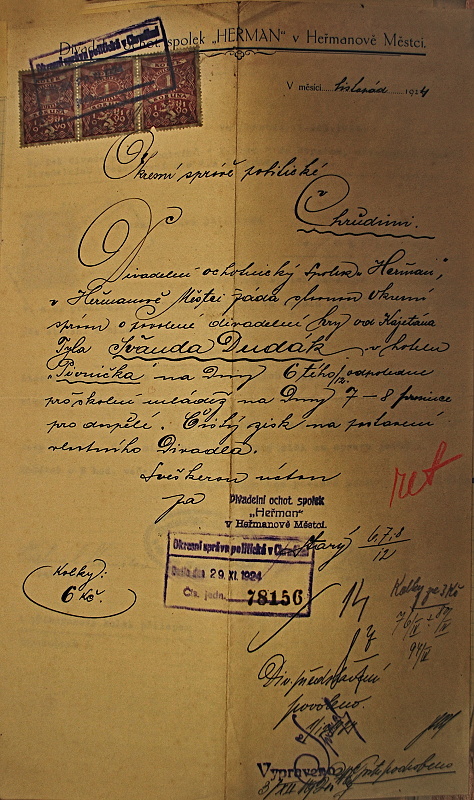 Divadelní ochot. spolek „HEŘMAN" v Heřmanově Městci.
Okresní správa politická v Chrudimi
V měsíci listopad 1924
Okresní správě politické
v
Chrudimi.
Divadelní ochotnický Spolek „Heřman",
v Heřmanově Městci žádá slavnou Okresní
správu o povolení divadelní hry od Kajetána
Tyla Švanda Dudák v hotelu
na Dny 6tého/12. odpoledne
pro školní mládež na Dny 7–8 prosince
pro dospělé. Čistý zisk na postavení
vlastního Divadla.
Sveškerou úctou
za
Divadelní ochot. spolek
„Heřman"
v Heřmanově Městci.
ret
6,7,8
12
Okresní správa politická v Chrudimi
Došlo dne 29. XI. 1924
Čís. jedn. 78156
Kolky:
6 Kč.
14
Kolky
Div. představení
povoleno.
Vypraveno